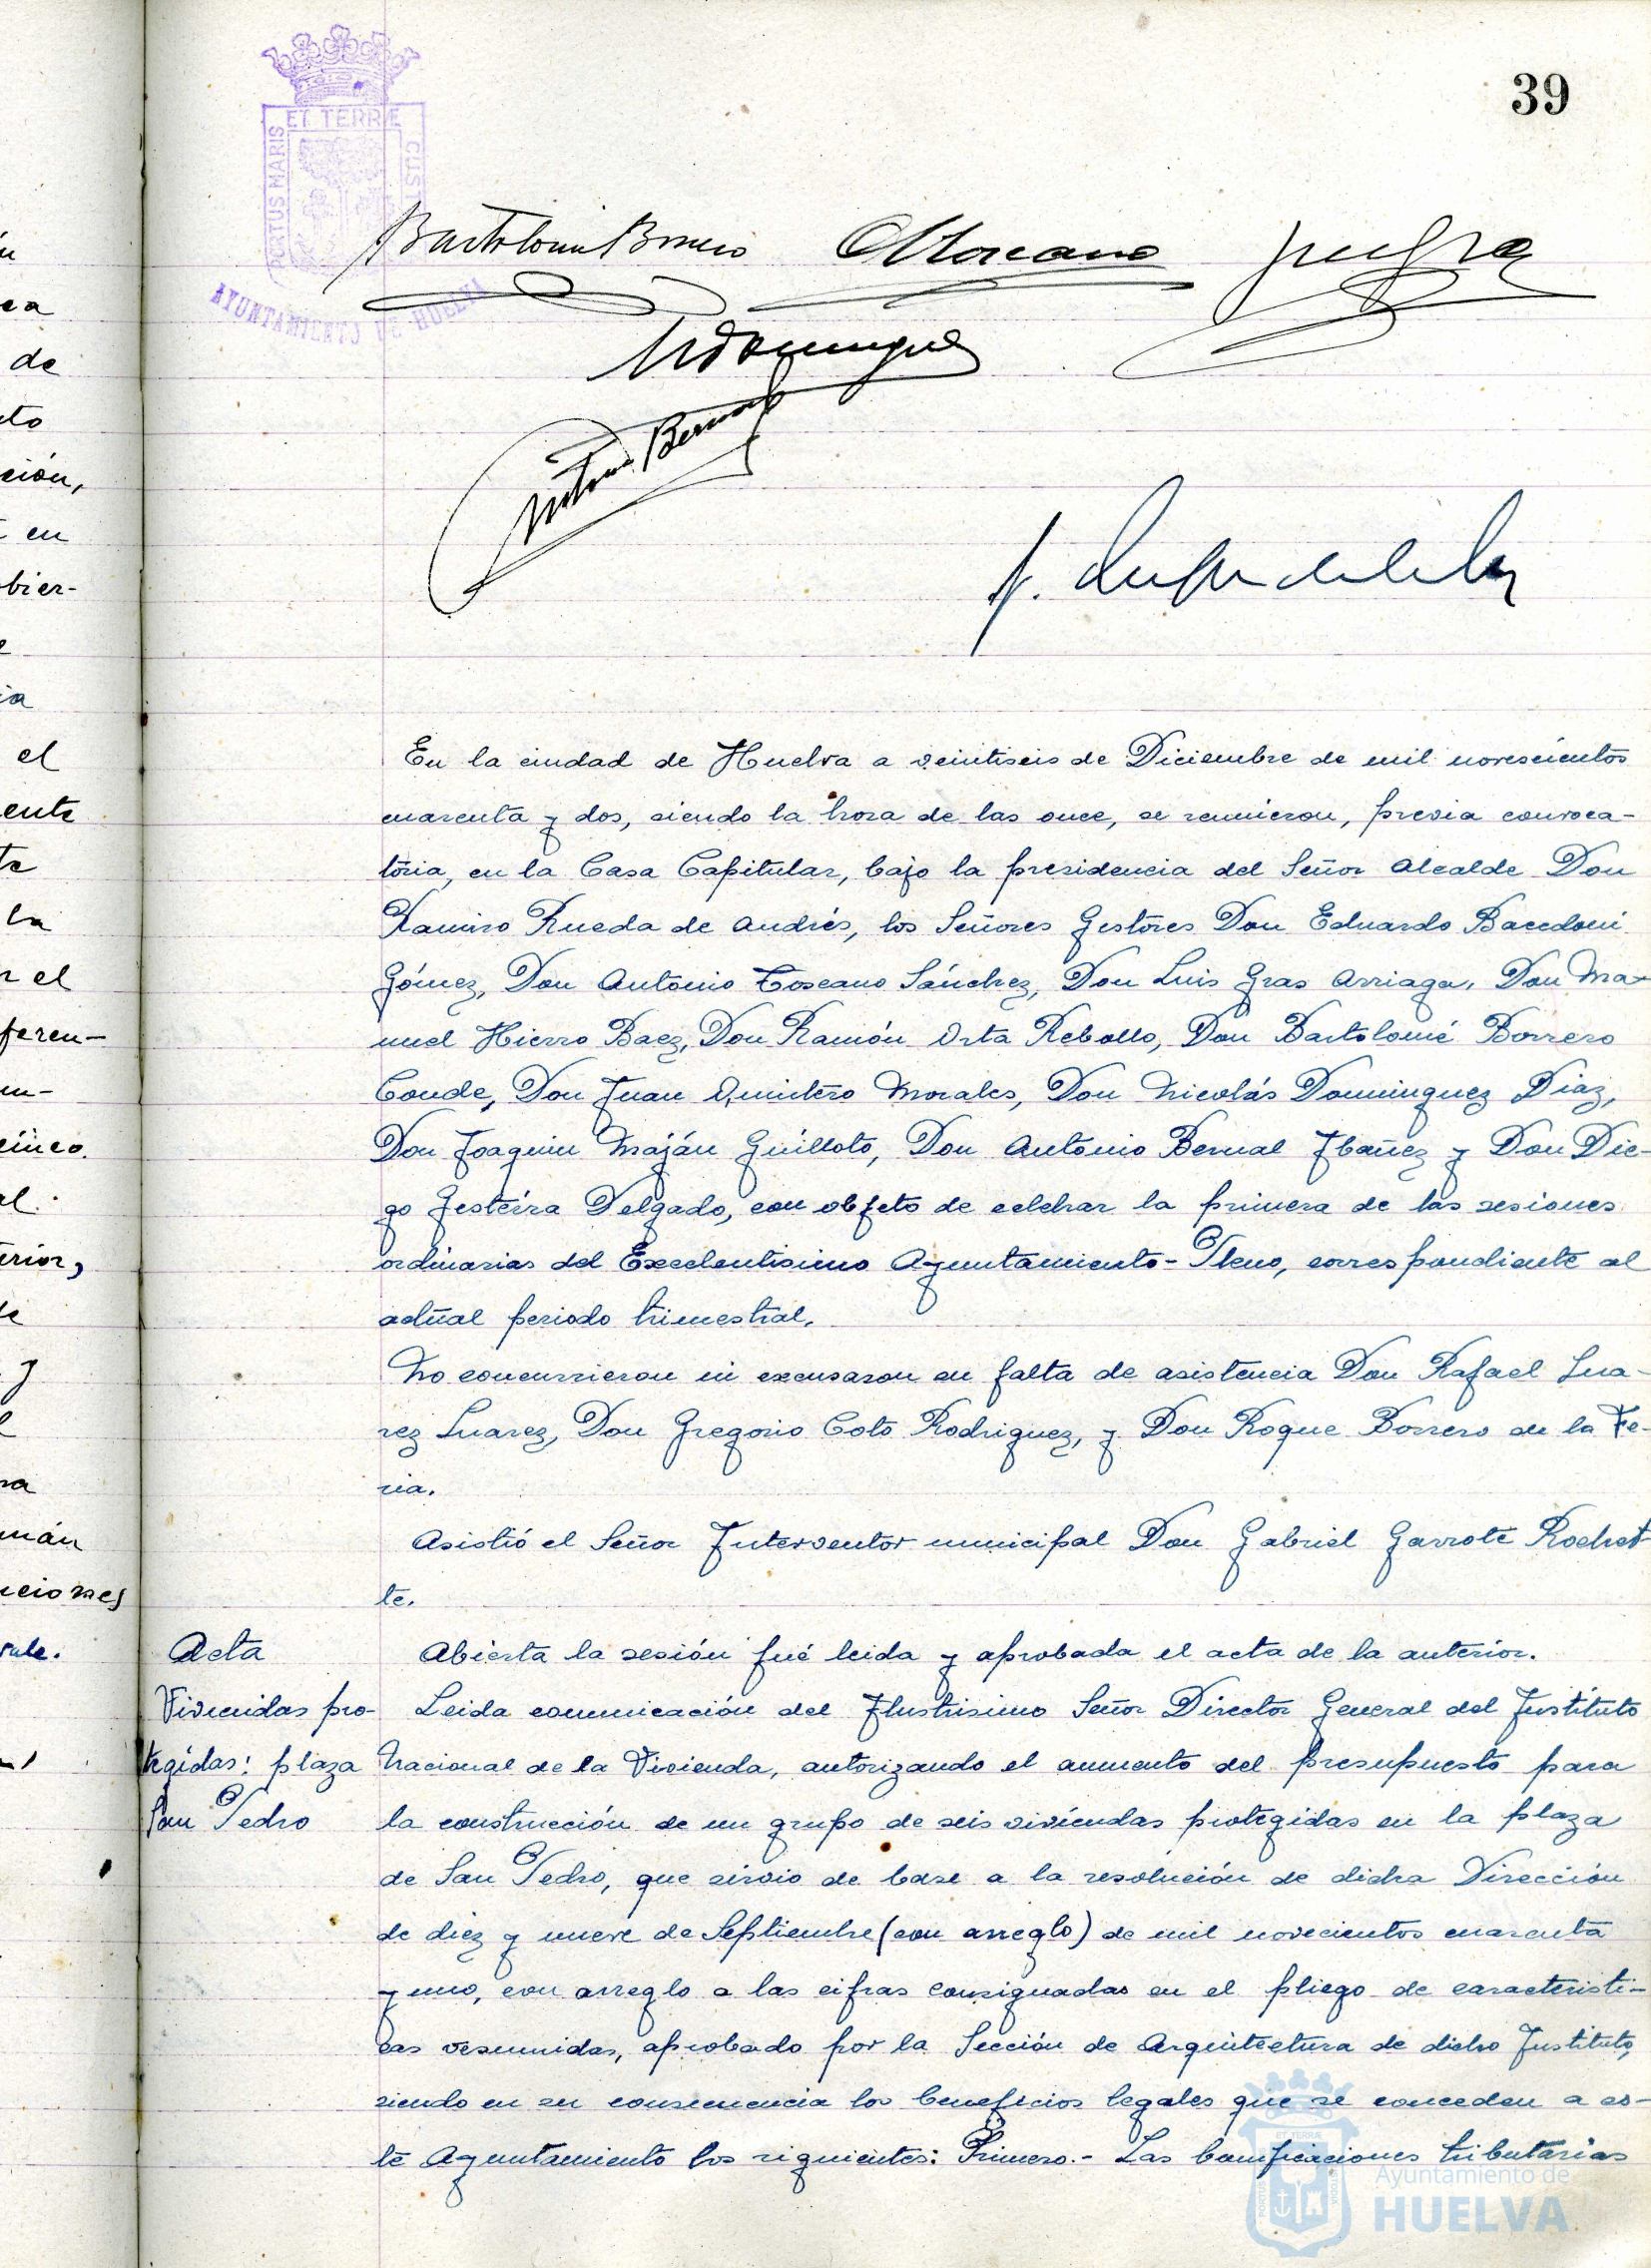 39
ET TERRÆ
PORTUS MARIS
CUST
AYUNTAMIENTO DE HUELVA
Bartolomé Borrero
Antonio Bernal
ca
de
ción,
en
bier-
el
ente
la
el
feren-
cinco.
al.
erior,
mán
ciones
vale.
En la ciudad de Huelva a veintiseis de Diciembre de mil novescientos
cuarenta y dos, siendo la hora de las once, se reunieron, previa convoca-
toria, en la Casa Capitular, bajo la presidencia del Señor Alcalde Don
Ramiro Rueda de Andrés, los Señores Gestores Don Eduardo Bacedoni
Gómez, Don Antonio Toscano Sánchez, Don Luis Gras Arriaga, Don Ma-
nuel Hierro Baez, Don Ramón Orta Rebollo, Don Bartolomé Borrero
Conde, Don Juan Quintero Morales, Don Nicolás Dominguez Diaz,
Don Joaquin Maján Guilloto, Don Antonio Bernal Ibañez y Don Die-
go Gesteira Delgado, con objeto de celebrar la primera de las sesiones
ordinarias del Excelentisimo Ayuntamiento-Pleno, correspondiente al
actual periodo trimestral.
No concurrieron ni excusaron su falta de asistencia Don Rafael Sua-
rez Suarez, Don Gregorio Coto Rodriguez, y Don Roque Borrero de la Fe-
ria.
Asistió el Señor Interventor municipal Don Gabriel Garrote Rochet-
te.
Acta
Abierta la sesión fué leida y aprobada el acta de la anterior.
Viviendas pro-
tegidas: plaza
San Pedro
Leida comunicación del Ilustrisimo Señor Director General del Instituto
Nacional de la Vivienda, autorizando el aumento del presupuesto para
la construcción de un grupo de seis viviendas protegidas en la plaza
de San Pedro, que sirvio de base a la resolución de dicha Dirección
de diez y nueve de Septiembre (con arreglo) de mil novecientos cuarenta
y uno, con arreglo a las cifras consignadas en el pliego de caracteristi-
cas resumidas, aprobado por la Sección de Arquitectura de dicho Instituto,
siendo en su consecuencia los beneficios legales que se conceden a es-
te Ayuntamiento los siguientes: Primero.- Las bonificaciones tributarias
Ayuntamiento de
HUELVA